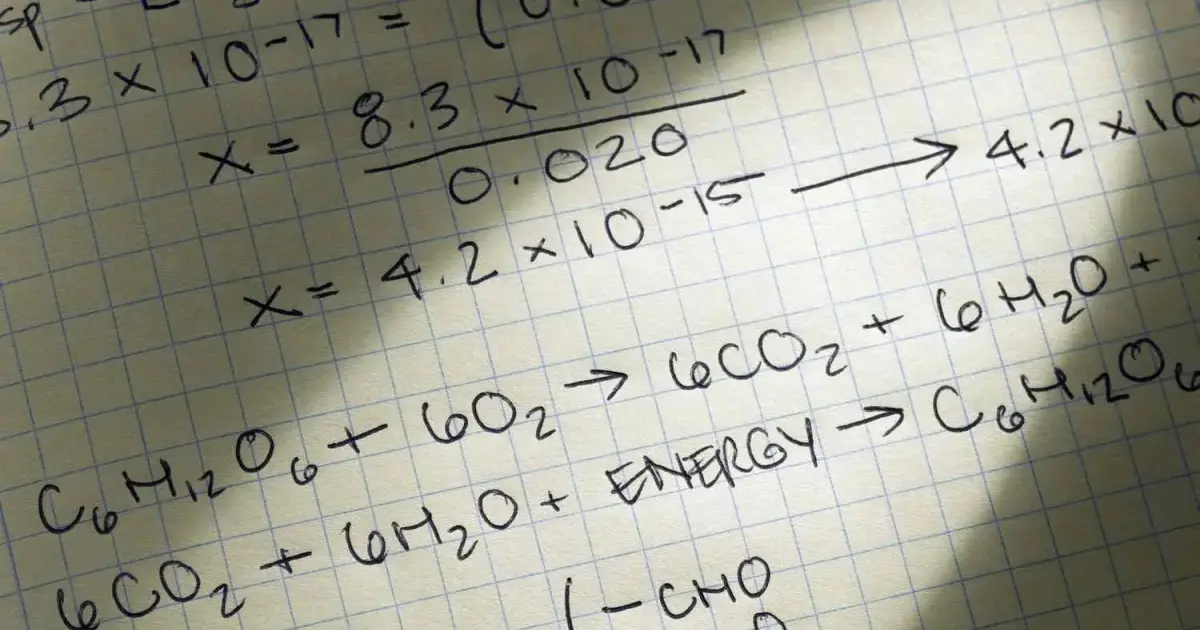 sp
.3 x 10⁻¹⁷ = (0.
x = 8.3 x 10⁻¹⁷
0.020
x = 4.2 x 10⁻¹⁵ → 4.2 x 10
C₆H₁₂O₆ + 6O₂ → 6CO₂ + 6H₂O +
6CO₂ + 6H₂O + ENERGY → C₆H₁₂O₆
(-CHO